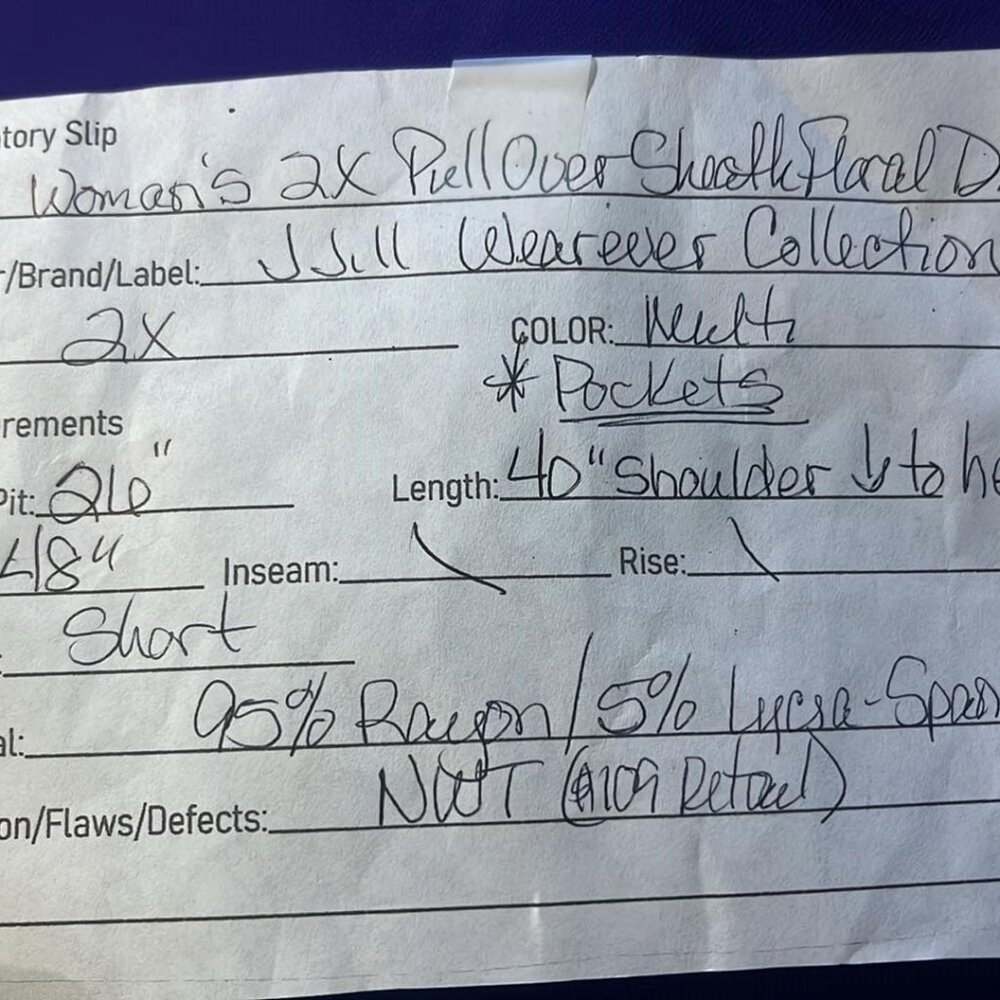 tory Slip
Woman's 2X PullOver Sheath Floral D
r/Brand/Label: JJill Wearever Collection
2X COLOR: Multi
* Pockets
rements
Pit: 26" Length: 40" Shoulder ↓ to he
48" Inseam: \ Rise: \
: Short
al: 95% Rayon/5% Lycra-Span
on/Flaws/Defects: NWT ($109 Retail)